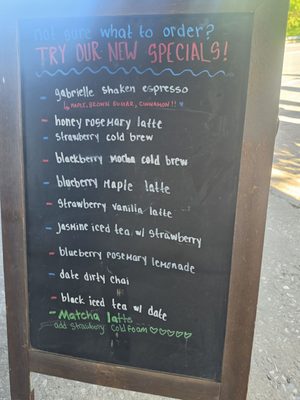 not sure what to order?
TRY OUR NEW SPECIALS!
- gabrielle shaken espresso
↳ MAPLE, BROWN SUGAR, CINNAMON!! ♥
- honey rosemary latte
- strawberry cold brew
- blackberry mocha cold brew
- blueberry Maple latte
- strawberry vanilla latte
- jasmine iced tea w/ strawberry
- blueberry rosemary lemonade
- date dirty chai
- black iced tea w/ date
- Matcha latte
add strawberry cold foam ♡♡♡♡♡